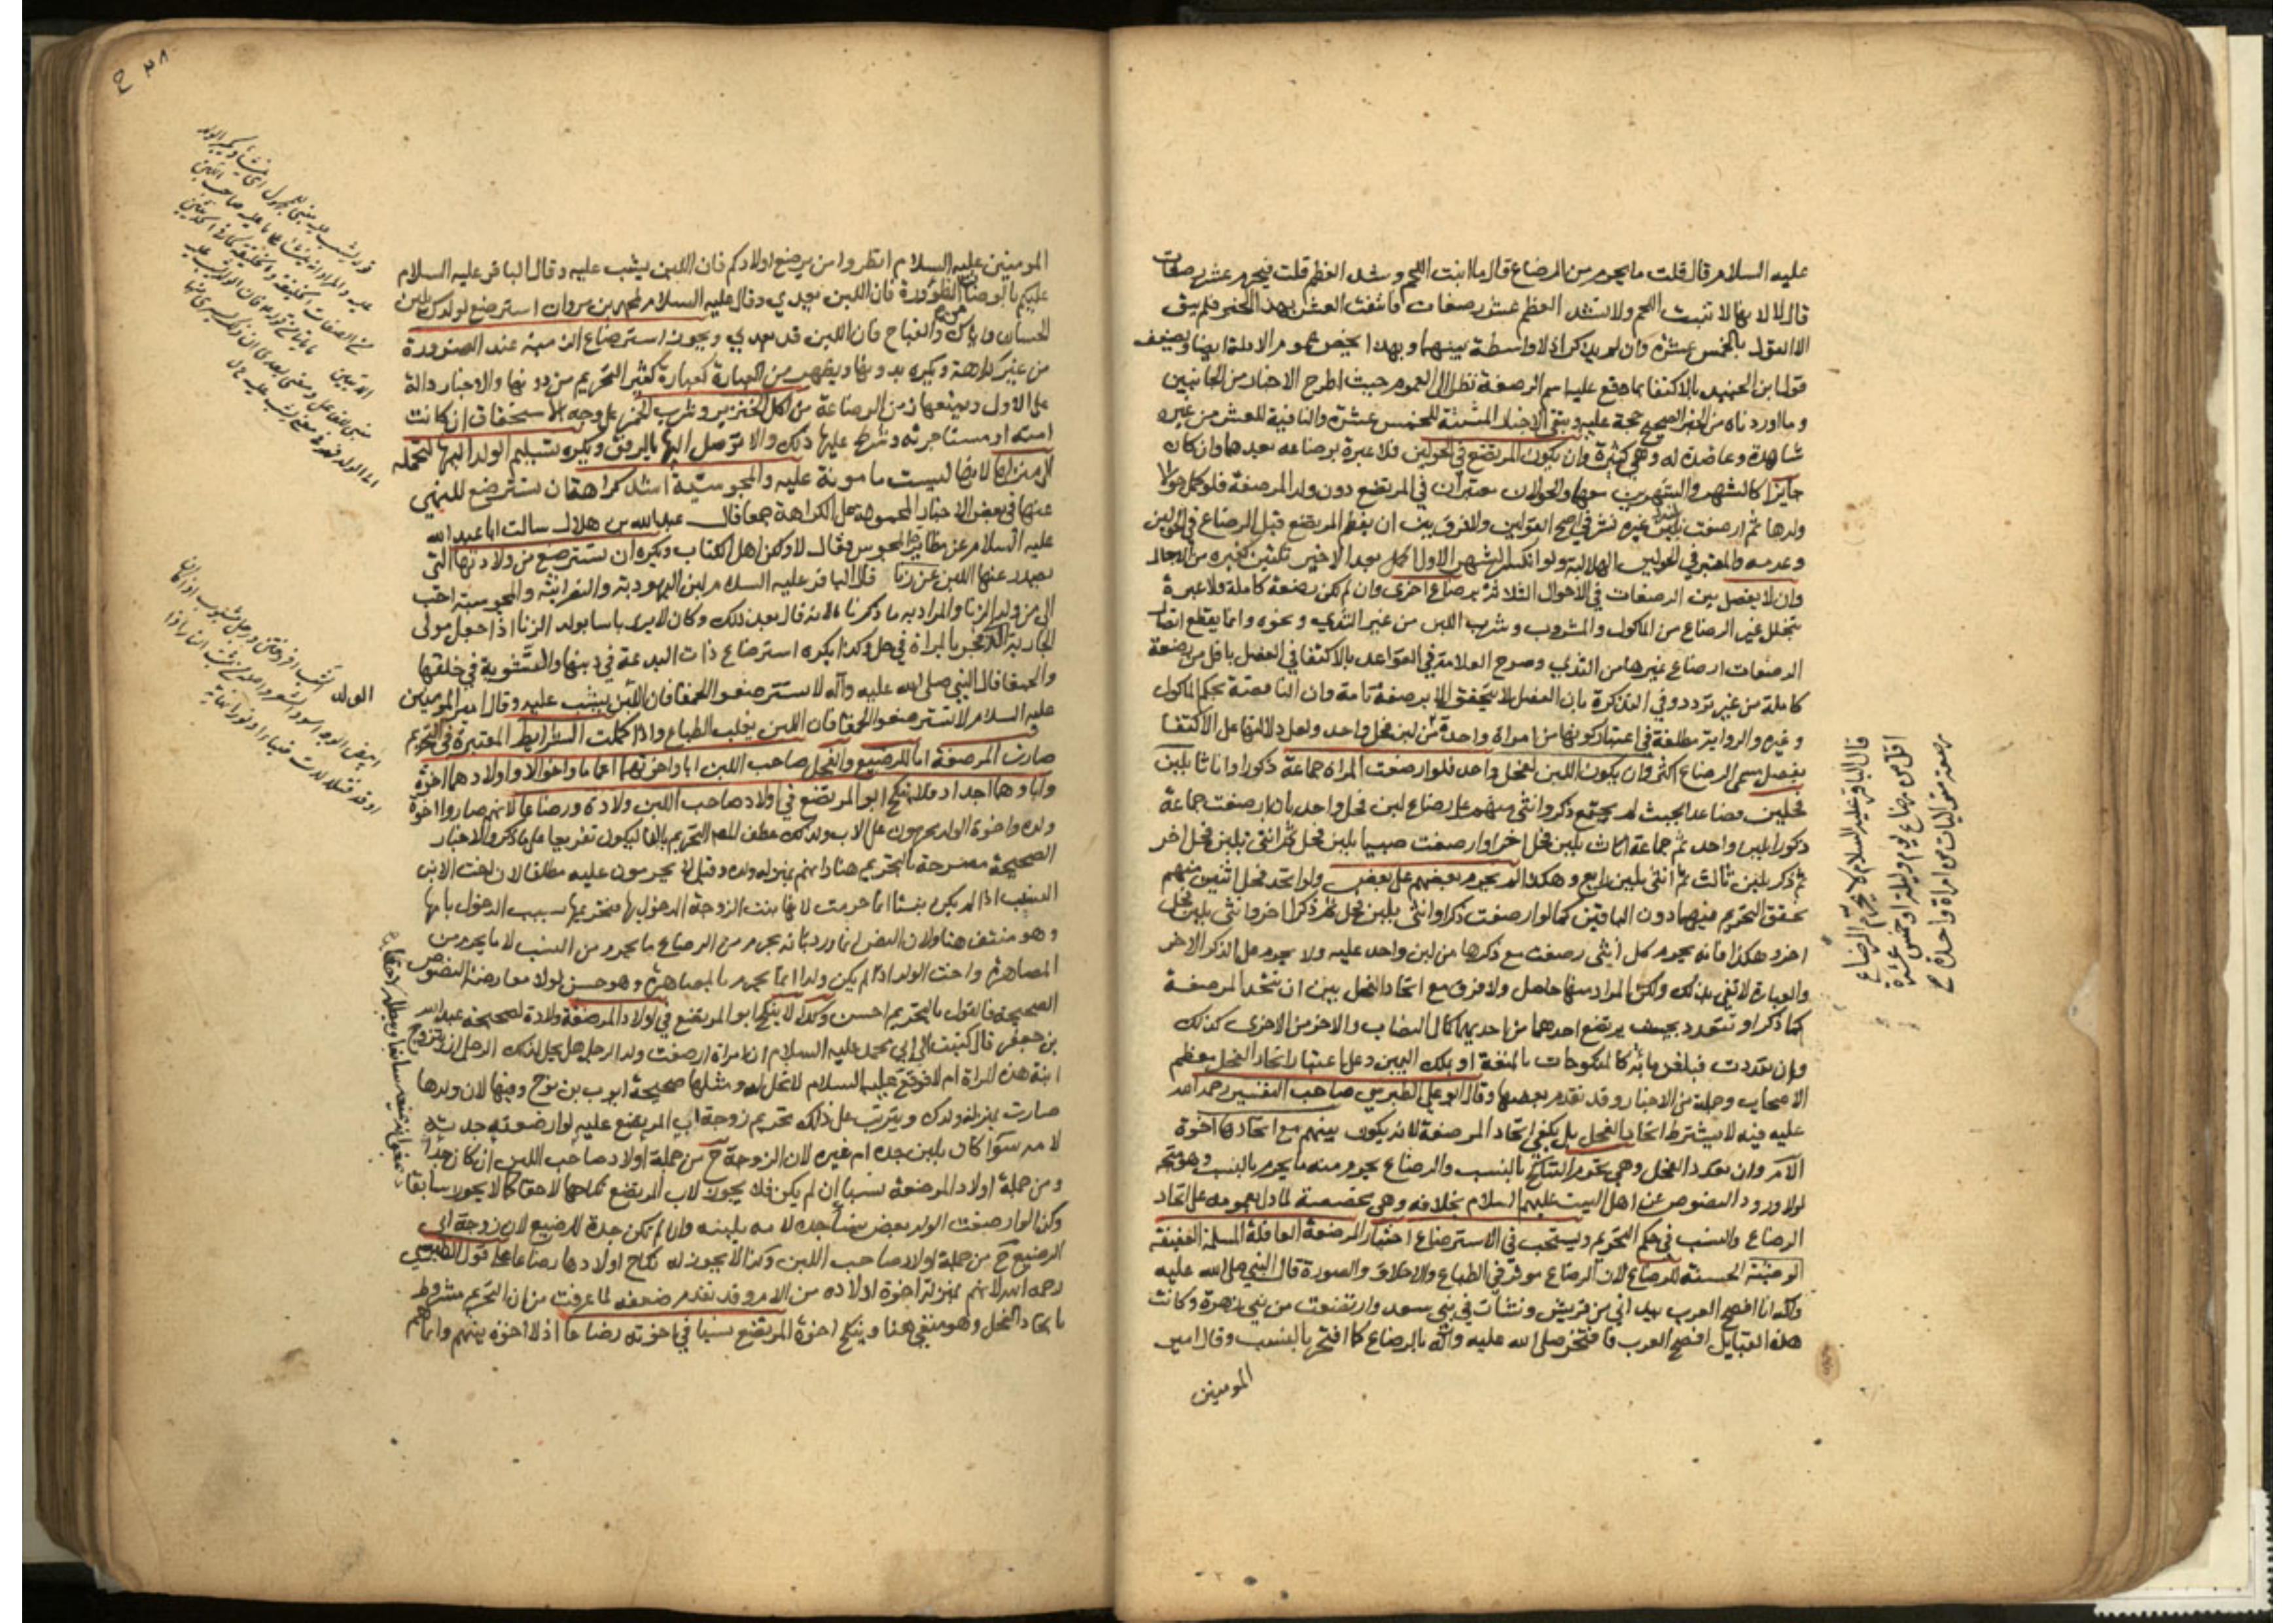 عليه السلام قال قلت ما يحرم من الرضاع قال ما انبت اللحم وشد العظم قلت فيحرم عشر رضعات
قال لا لانها لا تنبت اللحم ولا تشد العظم عشر رضعات فانتفت العشر بهذا الخبر فلم يبق
الا القول بالخمس عشرة وان لم يذكر اذ لا واسطة بينهما وبهذا يخص عموم الادلة ايضا ويضعف
قول ابن الجنيد بالاكتفا بما وقع عليه اسم الرضعة نظرا الى العموم حيث اطرح الاخبار من الجانبين
وما اوردناه من الخبر الصحيح حجة عليه وتبقى الاخبار المثبتة للخمس عشرة والنافية للعشر من غيره
شاهدة وعاضدة له وهي كثيرة وان يكون المرتضع في الحولين فلا عبرة برضاعه بعدهما وان كان
جايزا كالشهر والشهرين معهما والحولان معتبران في المرتضع دون ولد المرضعة فلو كمل حولا
ولدها ثم ارضعت بلبنه غيره نشر في اصح القولين ولا فرق بين ان يفطم المرتضع قبل الرضاع في الحولين
وعدمه والمعتبر في الحولين الهلالية ولو انكسر الشهر الاول اكمل بعد الاخير ثلثين كغيره من الاجال
وان لا يفصل بين الرضعات في الاحوال الثلاثة برضاع اخرى وان لم يكن رضعة كاملة فلا عبرة
بتخلل غير الرضاع من الماكول والمشروب وشرب اللبن من غير الثدي ونحوه وانما يقطع اتصال
الرضعات ارضاع غيرها من الثدي وصرح العلامة في القواعد بالاكتفا في الفصل باقل من رضعة
كاملة من غير تردد وفي التذكرة بان الفصل لا يتحقق الا برضعة تامة وان الناقصة بحكم الماكول
وغيره والرواية مطلقة في اعتبار كونها من امراة واحدة من لبن فحل واحد ولعل دلالتها على الاكتفا
بفصل مسمى الرضاع اكثر وان يكون اللبن لفحل واحد فلو ارضعت المراة جماعة ذكورا واناثا بلبن
فحلين فصاعدا بحيث لم يجتمع ذكر وانثى منهم على رضاع لبن فحل واحد بان ارضعت جماعة
ذكورا بلبن واحد ثم جماعة اناث بلبن فحل اخر او ارضعت صبيا بلبن فحل ثم انثى بلبن فحل اخر
ثم ذكر بلبن ثالث ثم انثى بلبن رابع وهكذا لم يحرم بعضهم على بعض ولو اتحد فحل اثنين منهم
تحقق التحريم فيهما دون الباقين كما لو ارضعت ذكرا وانثى بلبن فحل ثم ذكرا اخر وانثى بلبن فحل
اخر وهكذا فانه يحرم كل انثى رضعت مع ذكرها من لبن واحد عليه ولا يحرم على الذكر الاخر
والعبارة لا تفي بذلك ولكن المراد منها حاصل ولا فرق مع اتحاد الفحل بين ان تتحد المرضعة
كما ذكر او تتعدد بحيث يرتضع احدهما من احديهما كمال النصاب والاخر من الاخرى كذلك
وان تعددت فبلغن مائة كالمنكوحات بالمتعة او بملك اليمين وعلى اعتبار اتحاد الفحل معظم
الاصحاب وجملة من الاخبار وقد تقدم بعضها وقال ابو علي الطبرسي صاحب التفسير رحمه الله
عليه فيه لا يشترط اتحاد الفحل بل يكفي اتحاد المرضعة لانه يكون بينهم مع اتحادها اخوة
الام وان تعدد الفحل وهي تحرم التناكح بالنسب والرضاع يحرم منه ما يحرم بالنسب وهو متجه
لولا ورود النصوص عن اهل البيت عليهم السلام بخلافه وهي مخصصة لما دل بعمومه على اتحاد
الرضاع والنسب في حكم التحريم ويستحب في الاسترضاع اختيار المرضعة العاقلة المسلمة العفيفة
الوضيئة الحسنة للرضاع لان الرضاع موثر في الطباع والاخلاق والصورة قال النبي صلى الله عليه
واله انا افصح العرب بيد اني من قريش ونشات في بني سعد وارتضعت من بني زهرة وكانت
هذه القبايل افصح العرب فافتخر صلى الله عليه واله بالرضاع كما افتخر بالنسب وقال امير
المومنين
قال الباقر عليه السلام لا يحرم الرضاع
اقل من رضاع يوم وليلة او خمس عشرة
رضعة متواليات من امراة واحدة
المومنين عليه السلام انظروا من يرضع اولادكم فان اللبن يشب عليه وقال الباقر عليه السلام
عليكم بالوضاء من الظؤرة فان اللبن يعدي وقال عليه السلام لمحمد بن مروان استرضع لولدك بلبن
الحسان واياك والقباح فان اللبن قد يعدي ويجوز استرضاع الذمية عند الضرورة
من غير كراهة ويكره بدونها ويظهر من العبارة كعبارة كثير التحريم من دونها والاخبار دالة
على الاول ويمنعها زمن الرضاعة من اكل الخنزير وشرب الخمر على وجه الاستحقاق ان كانت
امته او مستاجرته وشرط عليها ذلك والا توصل اليها بالرفق ويكره تسليم الولد اليها لتحمله
الى منزلها لانها ليست مامونة عليه والمجوسية اشد كراهة ان تسترضع للنهي
عنها في بعض الاخبار المحمولة على الكراهة جمعا قال عبد الله بن هلال سالت ابا عبد الله
عليه السلام عن مظايرة المجوس فقال لا ولكن اهل الكتاب ويكره ان تسترضع من ولادتها التي
يصدر عنها اللبن عن زنا قال الباقر عليه السلام لبن اليهودية والنصرانية والمجوسية احب
الي من ولد الزنا والمراد به ما ذكرنا لانه قال بعد ذلك وكان لا يرى باسا بولد الزنا اذا جعل مولى
الجارية الذي فجر بالمراة في حل وكذا يكره استرضاع ذات البدعة في دينها والتشويه في خلقها
والحمقا قال النبي صلى الله عليه واله لا تسترضعوا الحمقا فان اللبن يشب عليه وقال امير المومنين
عليه السلام لا تسترضعوا الحمقا فان اللبن يغلب الطباع واذا كملت الشرايط المعتبرة في التحريم
صارت المرضعة اما للرضيع والفحل صاحب اللبن ابا واخوتهما اعماما واخوالا واولادهما اخوة
واباوهما اجدادا فلا ينكح ابو المرتضع في اولاد صاحب اللبن ولادة ورضاعا لانهم صاروا اخوة
ولده واخوة الولد محرمون على الاب ولذلك عطف المصـ التحريم بالفا ليكون تفريعا على ما ذكر والاخبار
الصحيحة مصرحة بالتحريم هنا وانهم بمنزلة ولده وقيل لا يحرمون عليه مطلقا لان اخت الابن
النسب اذا لم يكن بنتا انما حرمت لانها بنت الزوجة المدخول بها فتحريمها بسبب الدخول بامها
وهو منتف هنا ولان النص انما ورد بانه يحرم من الرضاع ما يحرم من النسب لا ما يحرم من
المصاهرة واخت الولد اذا لم يكن ولدا انما يحرم بالمصاهرة وهو حسن لولا معارضة النصوص
الصحيحة فالقول بالتحريم احسن وكذا لا ينكح ابو المرتضع في اولاد المرضعة ولادة لصحيحة عبد الله
بن جعفر قال كتبت الى ابي محمد عليه السلام ان امراة ارضعت ولد الرجل هل يحل لذلك الرجل ان يتزوج
ابنة هذه المراة ام لا فوقع عليه السلام لا تحل له ومثلها صحيحة ايوب بن نوح وفيها لان ولدها
صارت بمنزلة ولدك ويترتب على ذلك تحريم زوجة ابي المرتضع عليه لو ارضعته جدته
لامه سوا كان بلبن جده ام غيره لان الزوجة ح من جملة اولاد صاحب اللبن ان كان جدا
ومن جملة اولاد المرضعة نسبا ان لم يكن فلا يجوز لاب المرتضع نكاحها لاحقا كما لا يجوز سابقا
وكذا لو ارضعت الولد بعض نسا جده لامه بلبنه وان لم تكن جدة للرضيع لان زوجة ابي
الرضيع ح من جملة اولاد صاحب اللبن وكذا لا يجوز له نكاح اولادها رضاعا على قول الطبرسي
رحمه الله لانهم بمنزلة اخوة اولاده من الام وقد تقدم ضعفه لما عرفت من ان التحريم مشروط
باتحاد الفحل وهو منتفي هنا وينكح اخوة المرتضع نسبا في اخوته رضاعا اذ لا اخوة بينهم وانما هم
الولد